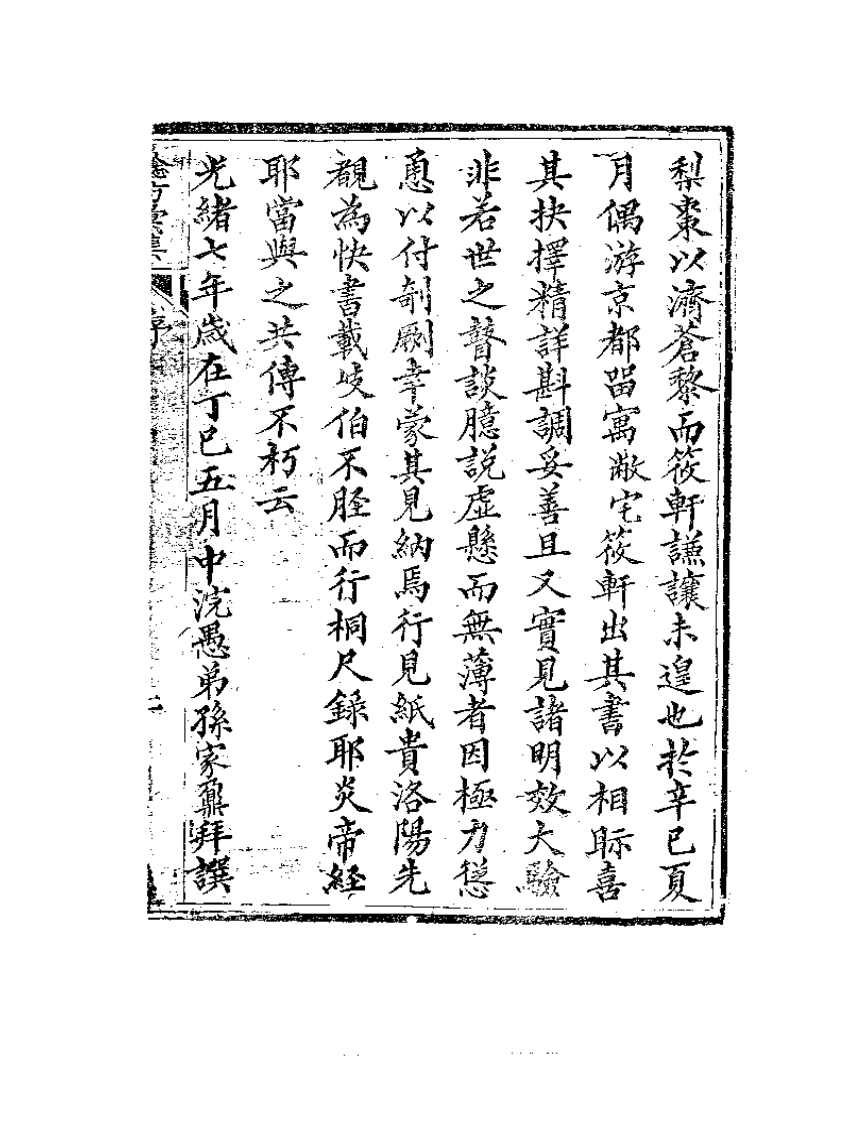 梨棗以濟蒼黎而筱軒謙讓未遑也於辛巳夏
月偶游京都畱寓敝宅筱軒出其書以相眎喜
其抉擇精詳斟調妥善且又實見諸明效大驗
非若世之瞽談臆說虛懸而無薄者因極力慫
恿以付剞劂幸蒙其見納焉行見紙貴洛陽先
覩為快書載歧伯不胫而行桐尺錄耶炎帝經
耶當與之共傳不朽云
光緒七年歲在丁巳五月中浣愚弟孫家鼐拜譔
驗方彙集 序 二